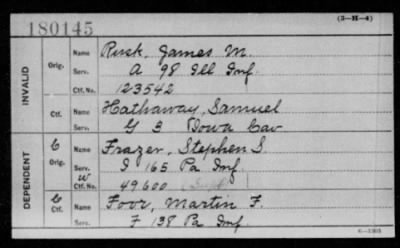 180145
(3—H—4)
INVALID
Orig.
Name Rusk, James M.
Serv. A 98 Ill Inf.
Ctf. No. 123542
Ctf.
Name Hathaway, Samuel
Serv. G 3 Iowa Cav
DEPENDENT
C
Orig.
Name Frazer, Stephen S.
Serv. I 165 Pa Inf.
W
Ctf. No. 49600
C
Ctf.
Name Foor, Martin F.
Serv. F 138 Pa Inf.